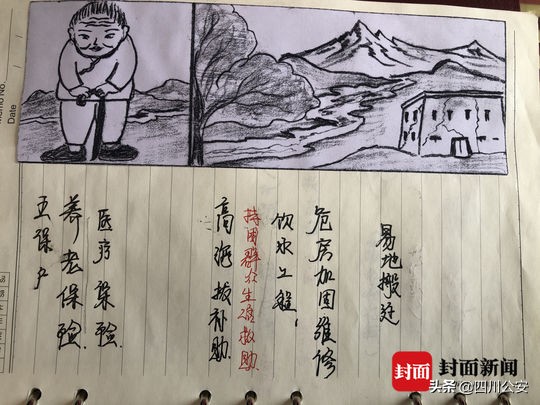 Memo No.
Date
易地搬迁
危房加固维修
饮水工程.
特困群众生活救助
高海拔补助.
医疗保险.
养老保险.
五保户
封面 封面新闻
头条@四川公安